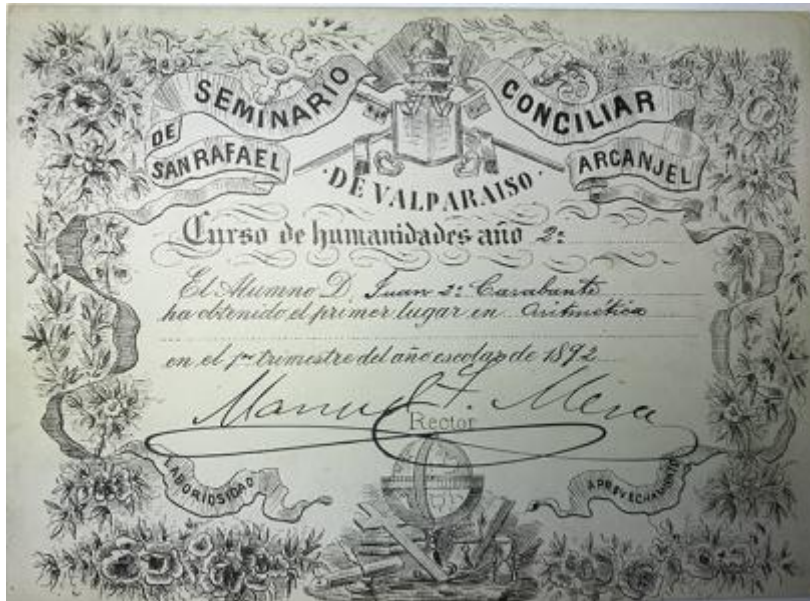 SEMINARIO CONCILIAR
DE SAN RAFAEL ARCANJEL
DE VALPARAISO
Curso de humanidades año 2º
El Alumno D. Juan 2º Carabante
ha obtenido el primer lugar en Aritmética
en el 1er trimestre del año escolar de 1892
Manuel F. Mera
Rector
LABORIOSIDAD
APROVECHAMIENTO